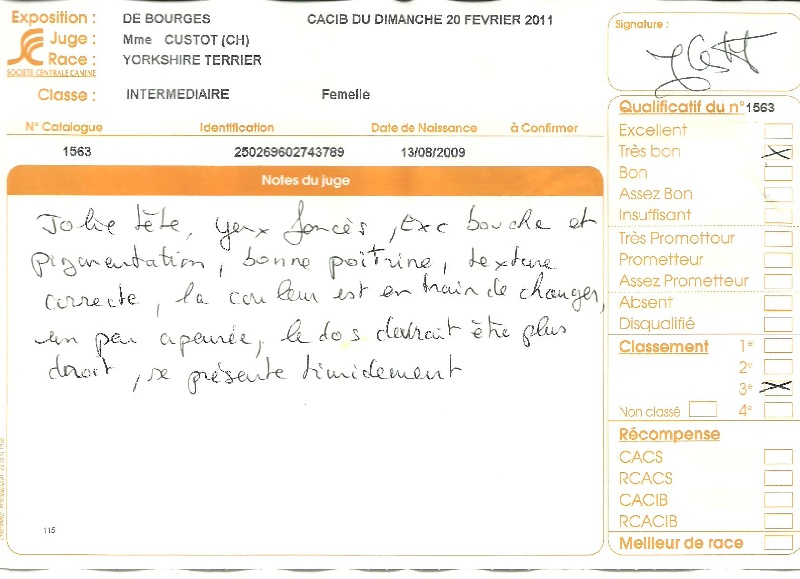 Exposition : DE BOURGES CACIB DU DIMANCHE 20 FEVRIER 2011
Juge : Mme CUSTOT (CH)
Race : YORKSHIRE TERRIER
SOCIETE CENTRALE CANINE
Classe : INTERMEDIAIRE Femelle
N° Catalogue Identification Date de Naissance à Confirmer
1563 250269602743789 13/08/2009
Notes du juge
Jolie tête, yeux foncés, Exc bouche et
pigmentation, bonne poitrine, texture
correcte, la couleur est en train de changer,
un peu apeurée, le dos devrait être plus
droit, se présente timidement
115
Signature :
Qualificatif du n° 1563
Excellent
Très bon
Bon
Assez Bon
Insuffisant
Très Prometteur
Prometteur
Assez Prometteur
Absent
Disqualifié
Classement 1e
2e
3e
Non classé 4e
Récompense
CACS
RCACS
CACIB
RCACIB
Meilleur de race